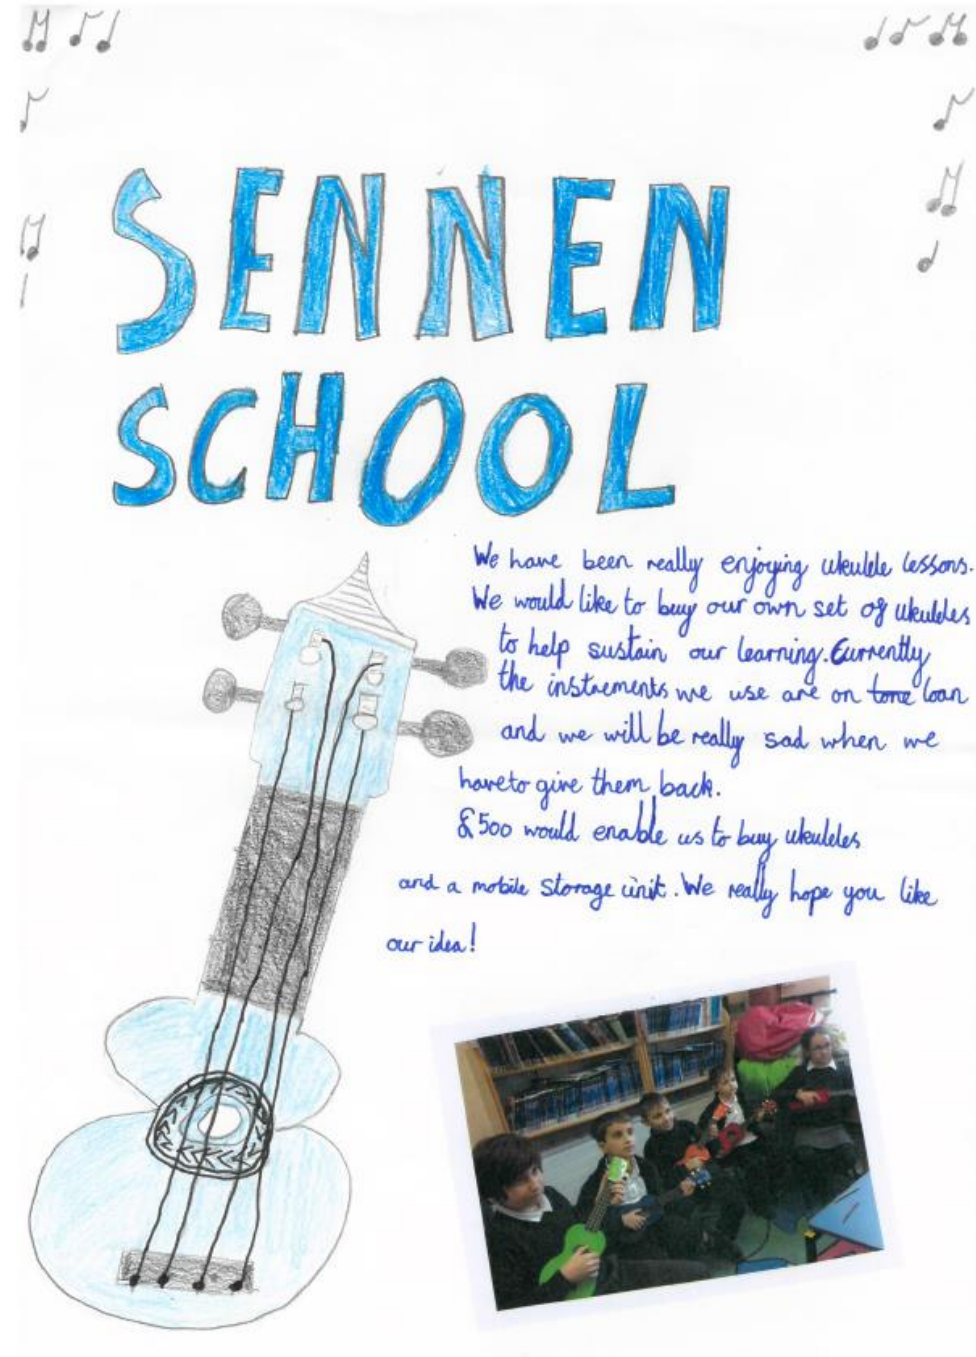 SENNEN
SCHOOL
We have been really enjoying ukulele lessons.
We would like to buy our own set of ukuleles
to help sustain our learning. Currently
the instrements we use are on tone loan
and we will be really sad when we
have to give them back.
£500 would enable us to buy ukuleles
and a mobile storage unit. We really hope you like
our idea!